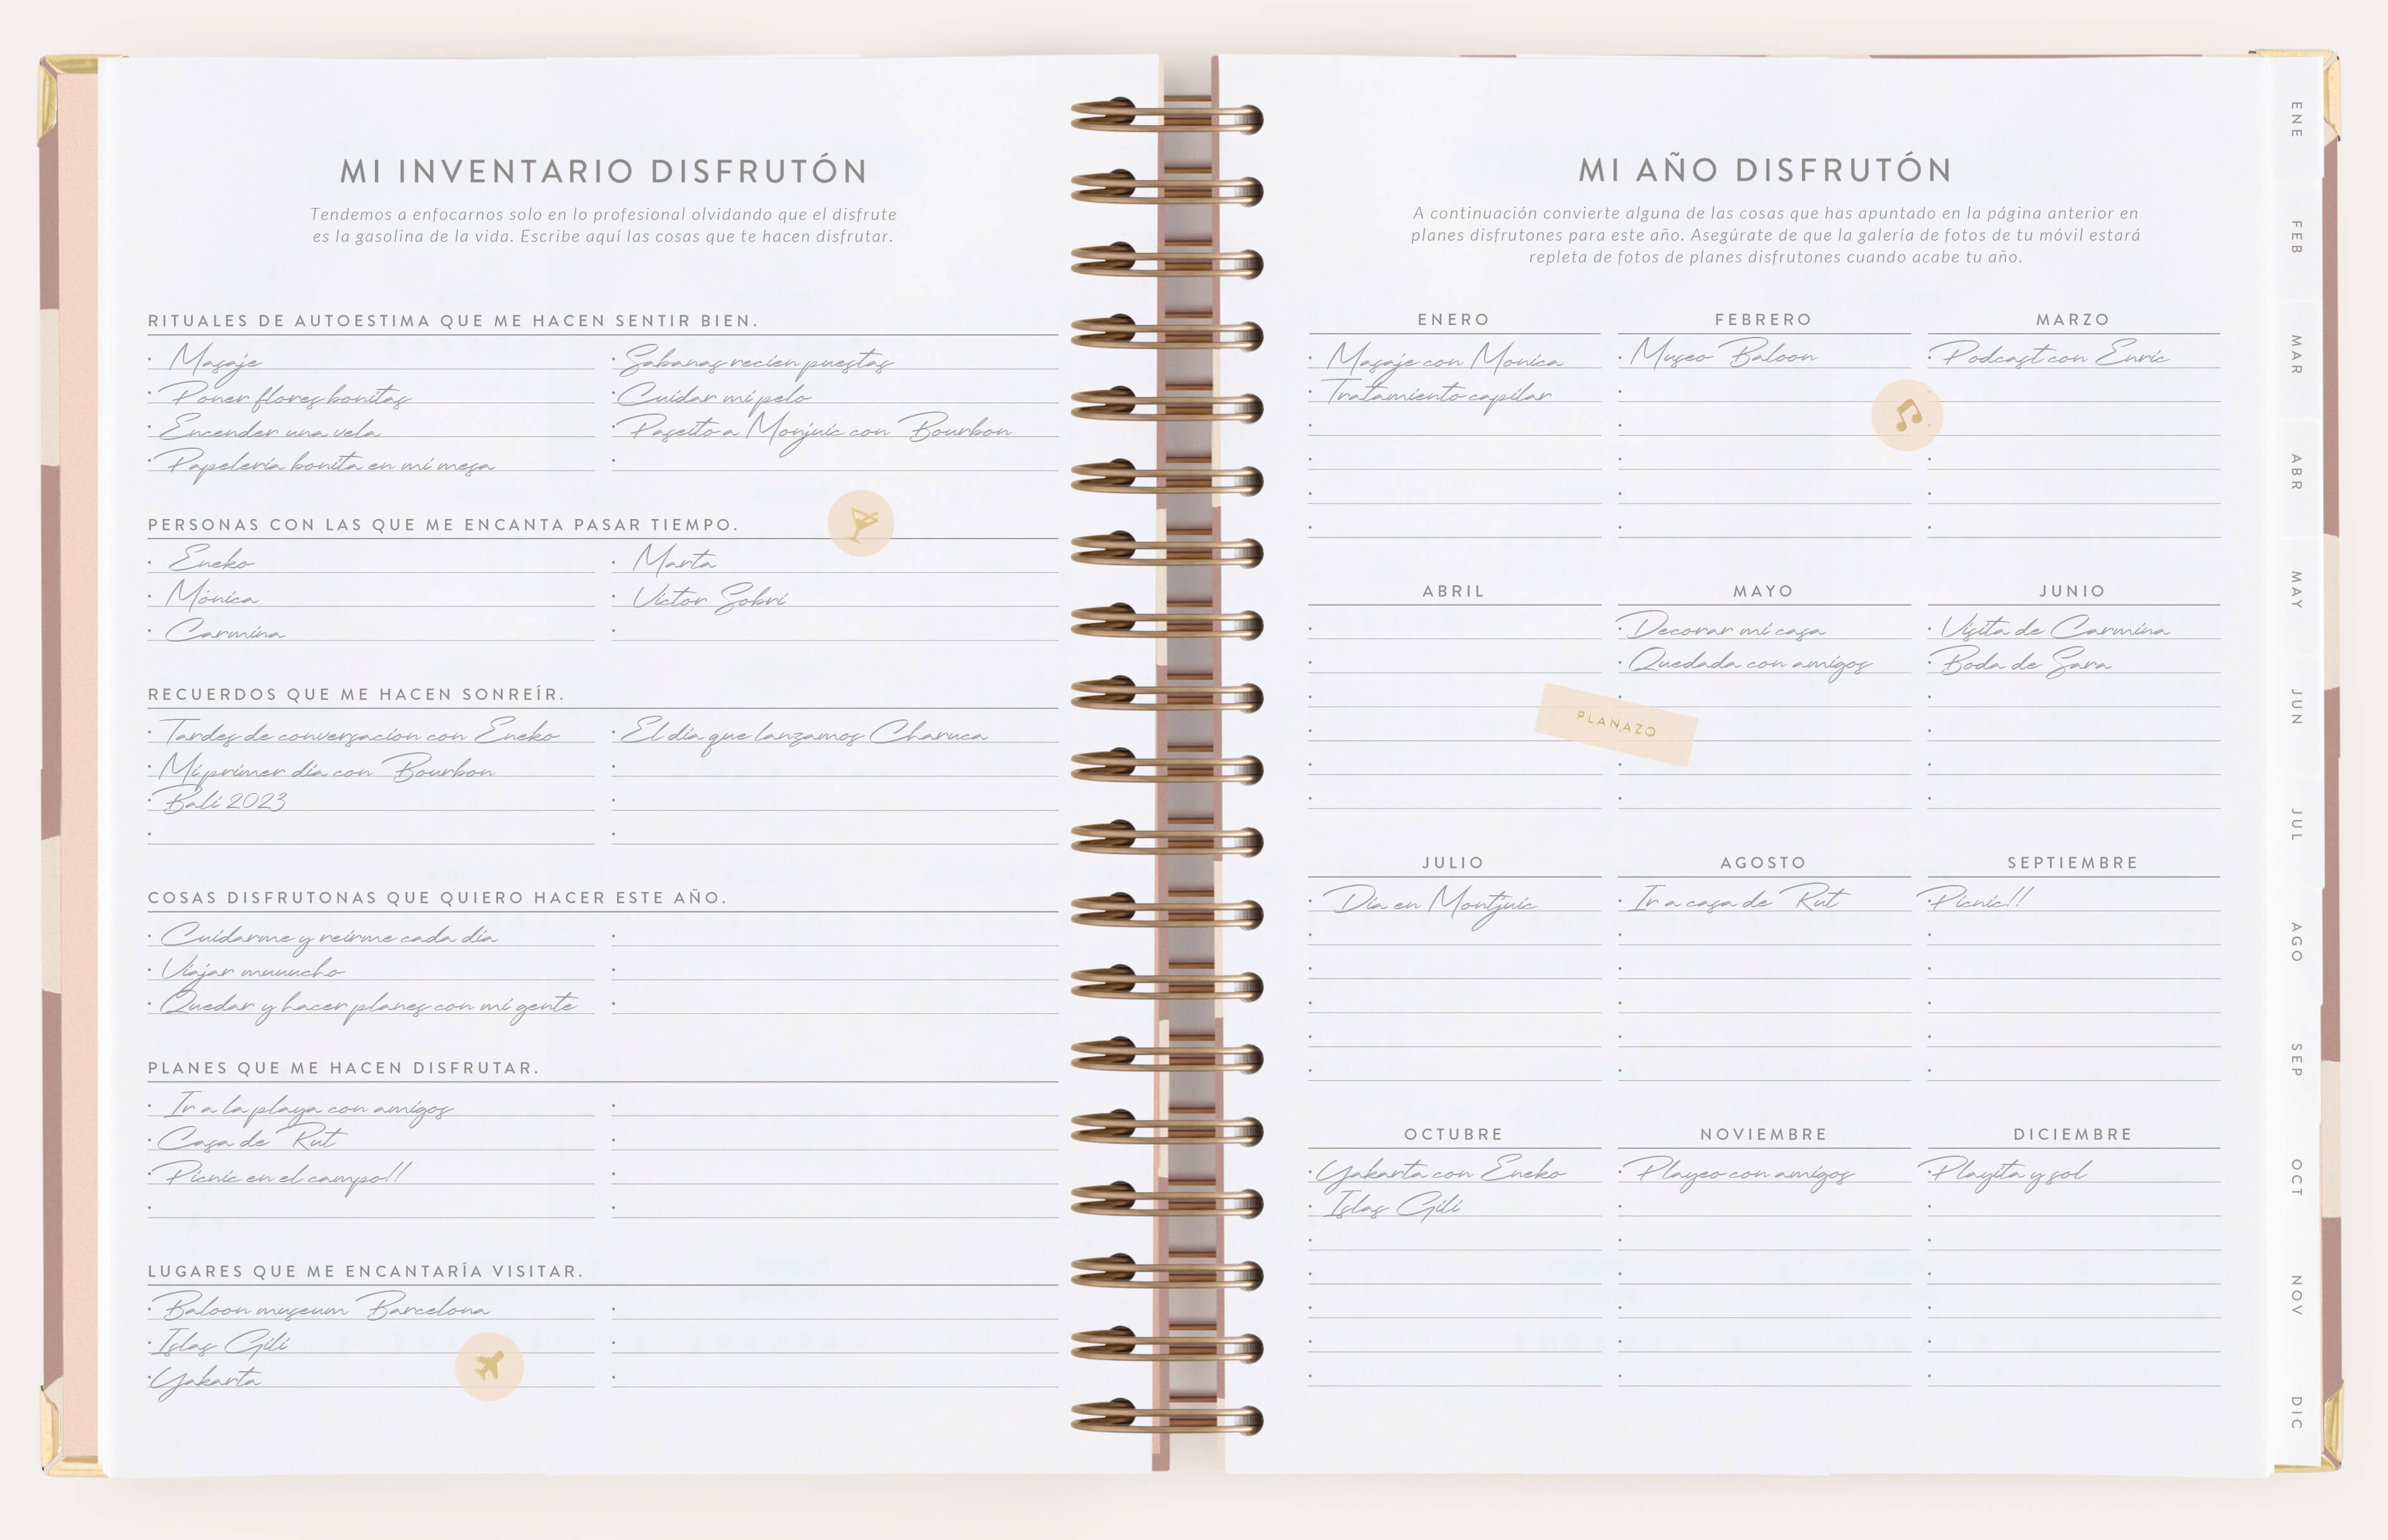 MI INVENTARIO DISFRUTÓN
Tendemos a enfocarnos solo en lo profesional olvidando que el disfrute
es la gasolina de la vida. Escribe aquí las cosas que te hacen disfrutar.
RITUALES DE AUTOESTIMA QUE ME HACEN SENTIR BIEN.
Masaje
Poner flores bonitas
Encender una vela
Papelería bonita en mi mesa
Sabanas recien puestas
Cuidar mi pelo
Paseito a Monjuic con Bourbon
PERSONAS CON LAS QUE ME ENCANTA PASAR TIEMPO.
Eneko
Mónica
Carmina
Marta
Victor Sobri
RECUERDOS QUE ME HACEN SONREÍR.
Tardes de conversacion con Eneko
Mi primer día con Bourbon
Bali 2023
El día que lanzamos Charuca
COSAS DISFRUTONAS QUE QUIERO HACER ESTE AÑO.
Cuidarme y reírme cada día
Viajar muuucho
Quedar y hacer planes con mi gente
PLANES QUE ME HACEN DISFRUTAR.
Ir a la playa con amigos
Casa de Rut
Picnic en el campo!!
LUGARES QUE ME ENCANTARÍA VISITAR.
Baloon museum Barcelona
Islas Gili
Yakarta
MI AÑO DISFRUTÓN
A continuación convierte alguna de las cosas que has apuntado en la página anterior en
planes disfrutones para este año. Asegúrate de que la galería de fotos de tu móvil estará
repleta de fotos de planes disfrutones cuando acabe tu año.
ENERO
Masaje con Monica
Tratamiento capilar
FEBRERO
Museo Baloon
MARZO
Podcast con Enric
ABRIL
MAYO
Decorar mi casa
Quedada con amigos
PLANAZO
JUNIO
Visita de Carmina
Boda de Sara
JULIO
Día en Montjuic
AGOSTO
Ir a casa de Rut
SEPTIEMBRE
Picnic!!
OCTUBRE
Yakarta con Eneko
Islas Gili
NOVIEMBRE
Playeo con amigos
DICIEMBRE
Playita y sol
ENE
FEB
MAR
ABR
MAY
JUN
JUL
AGO
SEP
OCT
NOV
DIC